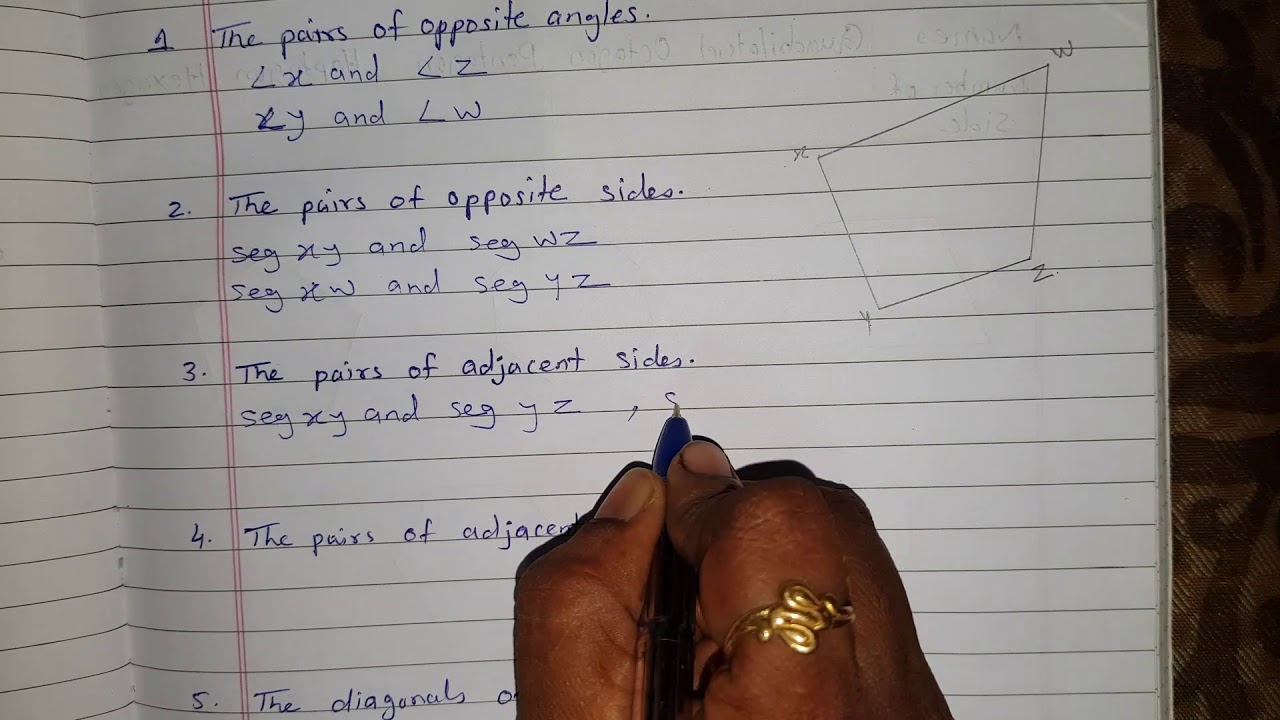 1 The pairs of opposite angles.
∠x and ∠z
∠y and ∠w
2. The pairs of opposite sides.
seg xy and seg wz
seg xw and seg yz
3. The pairs of adjacent sides.
seg xy and seg yz , s
4. The pairs of adjacent
5. The diagonals o
w
x
z
y